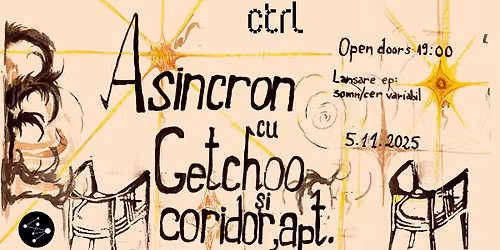 ctrl
Asincron
cu
Getchoo
și
coridor, apt.
Open doors 19:00
Lansare ep:
somn/cer variabil
5.11.2025